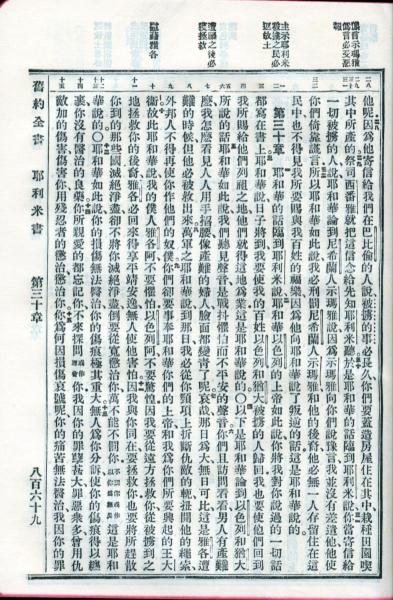 主示耶利米
被擄之民必
返故土
遭難之後必
獲拯救
慰藉雅各
他呢因爲他寄信給我們在巴比倫的人說被擄的事必長久你們要蓋造房屋住在其中栽種田園喫
其中所產的祭司西番雅就把這信念給先知耶利米聽於是耶和華的話臨到耶利米說你當寄信給
一切被擄的人說耶和華論到尼希蘭人示瑪雅說因爲示瑪雅向你們說豫言我並沒有差遣他他使
你們倚靠謊言所以耶和華如此說我必刑罰尼希蘭人示瑪雅和他的後裔他必無一人存留住在這
民中也不得見我所要賜與我百姓的福樂因爲他向耶和華說了叛逆的話這是耶和華說的
第三十章 耶和華的話臨到耶利米說耶和華以色列的上帝如此說你將我對你說過的一切話
都寫在書上耶和華說日子將到我要使我的百姓以色列和猶大被擄的人歸回我也要使他們回到
我所賜給他們列祖之地他們就得這地爲業這是耶和華說的〇以下是耶和華論到以色列和猶大
所說的話耶和華如此說我們聽見聲音是戰抖懼怕而不平安的聲音你們且訪問看看男人有產難
麼我怎麼看見人人用手掐腰像產難的婦人臉面都變青了呢哀哉那日爲大無日可比這是雅各遭
難的時候但他必被救出來萬軍之耶和華說到那日我必從你頸項上折斷仇敵的軛扭開他的繩索
外邦人不得再使你作他們的奴僕你們卻要事奉耶和華你們的上帝和我爲你們所要興起的王大
衞故此耶和華說我的僕人雅各阿不要懼怕以色列阿不要驚惶因我要從遠方拯救你從被擄到之
地拯救你的後裔雅各必回來得享平靖安逸無人使他害怕因我與你同在要拯救你也要將所趕散
你到的那些國滅絕淨盡卻不將你滅絕淨盡倒要從寬懲治你萬不能不罰你不罰你或作以你爲無罪這是耶和
華說的〇耶和華如此說你的損傷無法醫治你的傷痕極其重大無人爲你分訴使你的傷痕得以纏
裹你沒有醫治的良藥你所親愛的都忘記你不來探問或作理會你我因你的罪孽甚大罪惡衆多曾用仇
敵加的傷害傷害你用殘忍者的懲治懲治你你爲何因損傷哀號呢你的痛苦無法醫治我因你的罪
舊約全書 耶利米書 第三十章 八百六十九